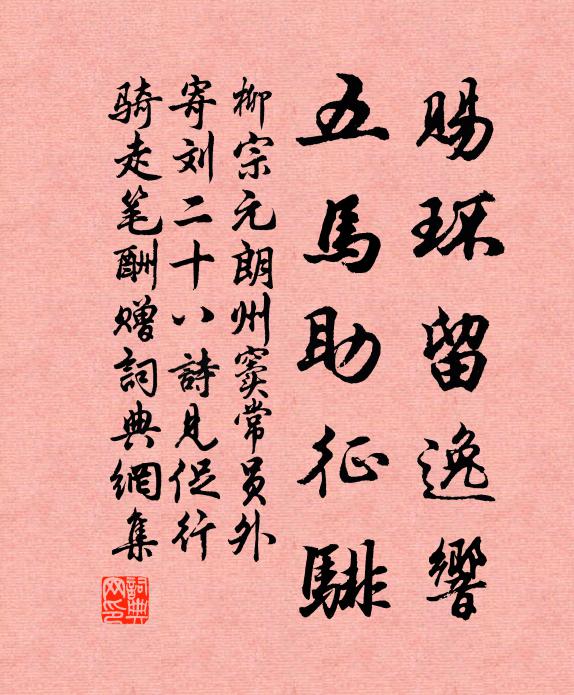 赐环留逸響
五馬助征騑
柳宗元朗州窦常员外
寄刘二十八詩见促行
骑走笔酬赠詞典網集
詞典网印